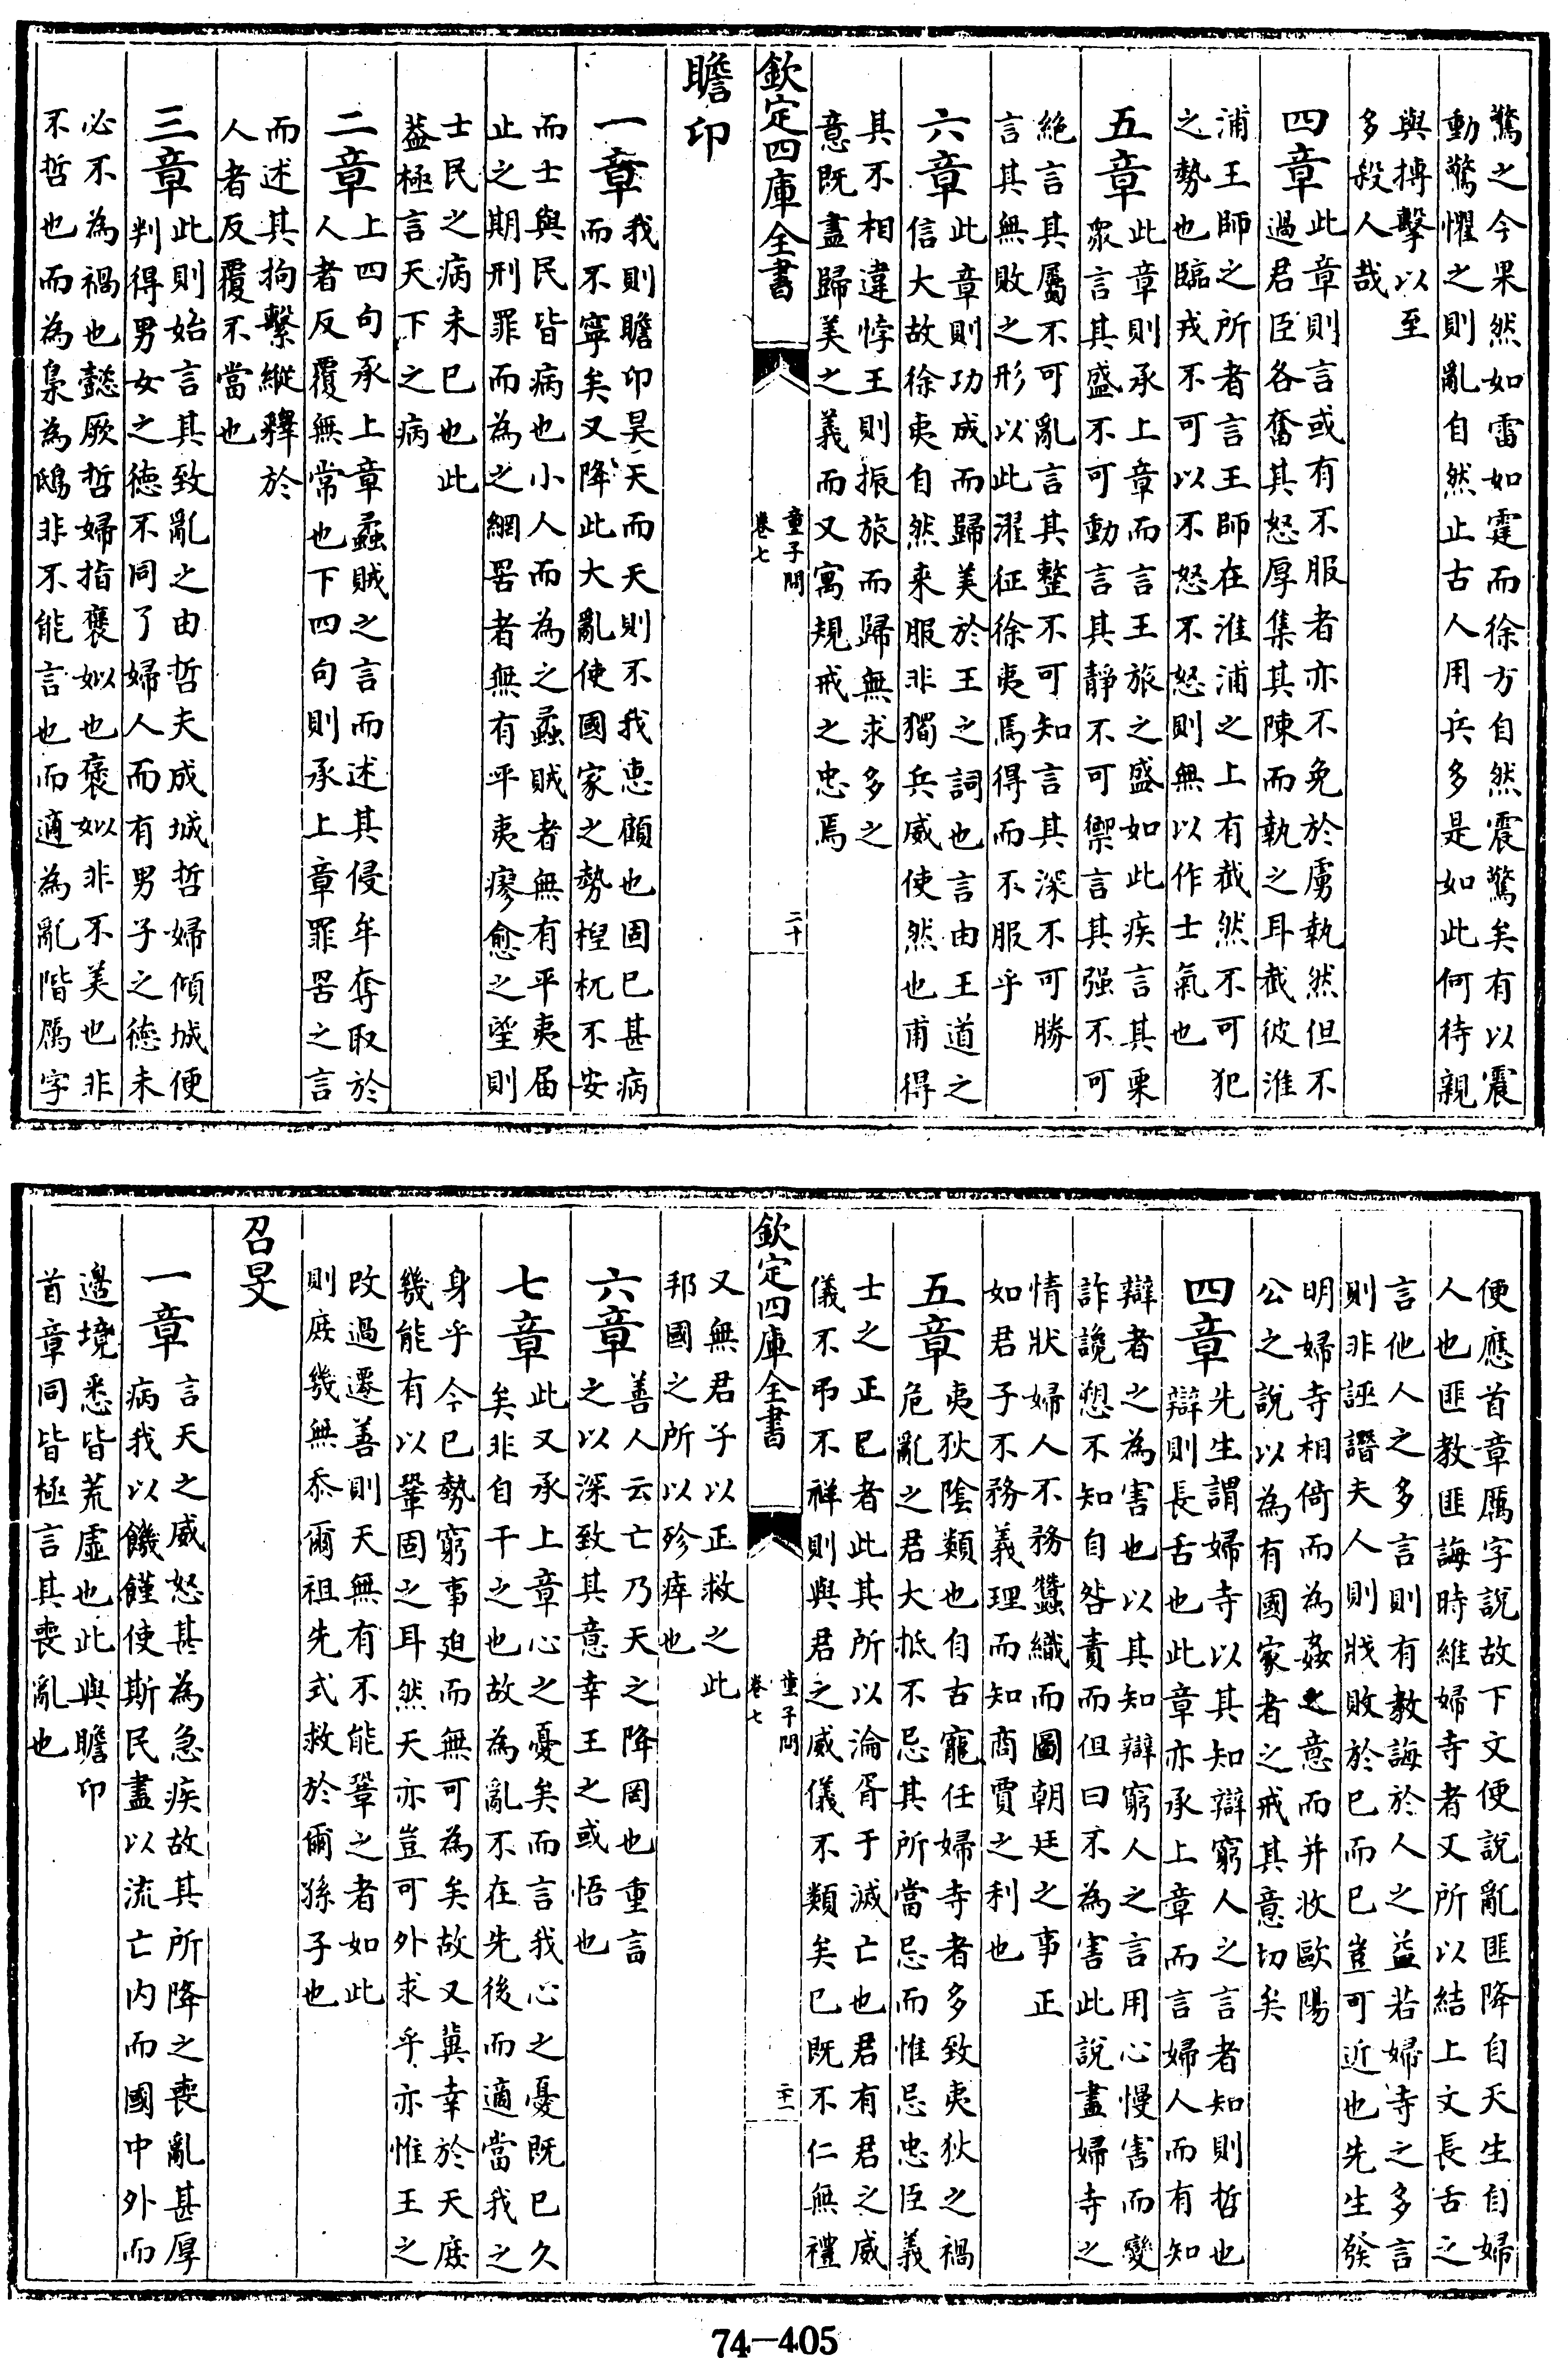 驚之今果然如雷如霆而徐方自然震驚矣有以震
動驚懼之則亂自然止古人用兵多是如此何待親
與搏擊以至
多殺人哉
四章
此章則言或有不服者亦不免於虜執然但不
過君臣各奮其怒厚集其陳而執之耳截彼淮
浦王師之所者言王師在淮浦之上有截然不可犯
之勢也臨戎不可以不怒不怒則無以作士氣也
五章
此章則承上章而言王旅之盛如此疾言其栗
衆言其盛不可動言其靜不可禦言其强不可
絶言其屬不可亂言其整不可知言其深不可勝
言其無敗之形以此濯征徐夷焉得而不服乎
六章
此章則功成而歸美於王之詞也言由王道之
信大故徐夷自然来服非獨兵威使然也甫得
其不相違悖王則振旅而歸無求多之
意既盡歸美之義而又寓規戒之忠焉
欽定四庫全書
童子問
卷七
二十
瞻卬
一章
我則瞻卬昊天而天則不我惠顧也固已甚病
而不寧矣又降此大亂使國家之勢楻杌不安
而士與民皆病也小人而為之蟊賊者無有平夷届
止之期刑罪而為之網罟者無有平夷瘳愈之望則
士民之病未已也此
葢極言天下之病
二章
上四句承上章蟊賊之言而述其侵牟奪取於
人者反覆無常也下四句則承上章罪罟之言
而述其拘繫縱釋於
人者反覆不當也
三章
此則始言其致亂之由哲夫成城哲婦傾城便
判得男女之徳不同了婦人而有男子之徳未
必不為禍也懿厥哲婦指褒姒也褒姒非不美也非
不哲也而為梟為鴟非不能言也而適為亂階厲字
便應首章厲字說故下文便說亂匪降自天生自婦
人也匪教匪誨時維婦寺者又所以結上文長舌之
言他人之多言則有教誨於人之益若婦寺之多言
則非誣譖夫人則戕敗於已而已豈可近也先生發
明婦寺相倚而為姦之意而并收歐陽
公之說以為有國家者之戒其意切矣
四章
先生謂婦寺以其知辯窮人之言者知則哲也
辯則長舌也此章亦承上章而言婦人而有知
辯者之為害也以其知辯窮人之言用心慢害而變
詐讒愬不知自咎責而但曰不為害此說盡婦寺之
情狀婦人不務蠶織而圖朝廷之事正
如君子不務義理而知商賈之利也
五章
夷狄陰類也自古寵任婦寺者多致夷狄之禍
危亂之君大抵不忌其所當忌而惟忌忠臣義
士之正已者此其所以淪胥于滅亡也君有君之威
儀不弔不祥則與君之威儀不類矣已既不仁無禮
欽定四庫全書
童子問
卷七
二十一
又無君子以正救之此
邦國之所以殄瘁也
六章
善人云亡乃天之降罔也重言
之以深致其意幸王之或悟也
七章
此又承上章心之憂矣而言我心之憂既已久
矣非自干之也故為亂不在先後而適當我之
身乎今已勢窮事廹而無可為矣故又冀幸於天庶
幾能有以鞏固之耳然天亦豈可外求乎亦惟王之
改過遷善則天無有不能鞏之者如此
則庶幾無忝爾祖先式救於爾孫子也
召旻
一章
言天之威怒甚為急疾故其所降之喪亂甚厚
病我以饑饉使斯民盡以流亡内而國中外而
邊境悉皆荒虛也此與瞻卬
首章同皆極言其喪亂也
74—405